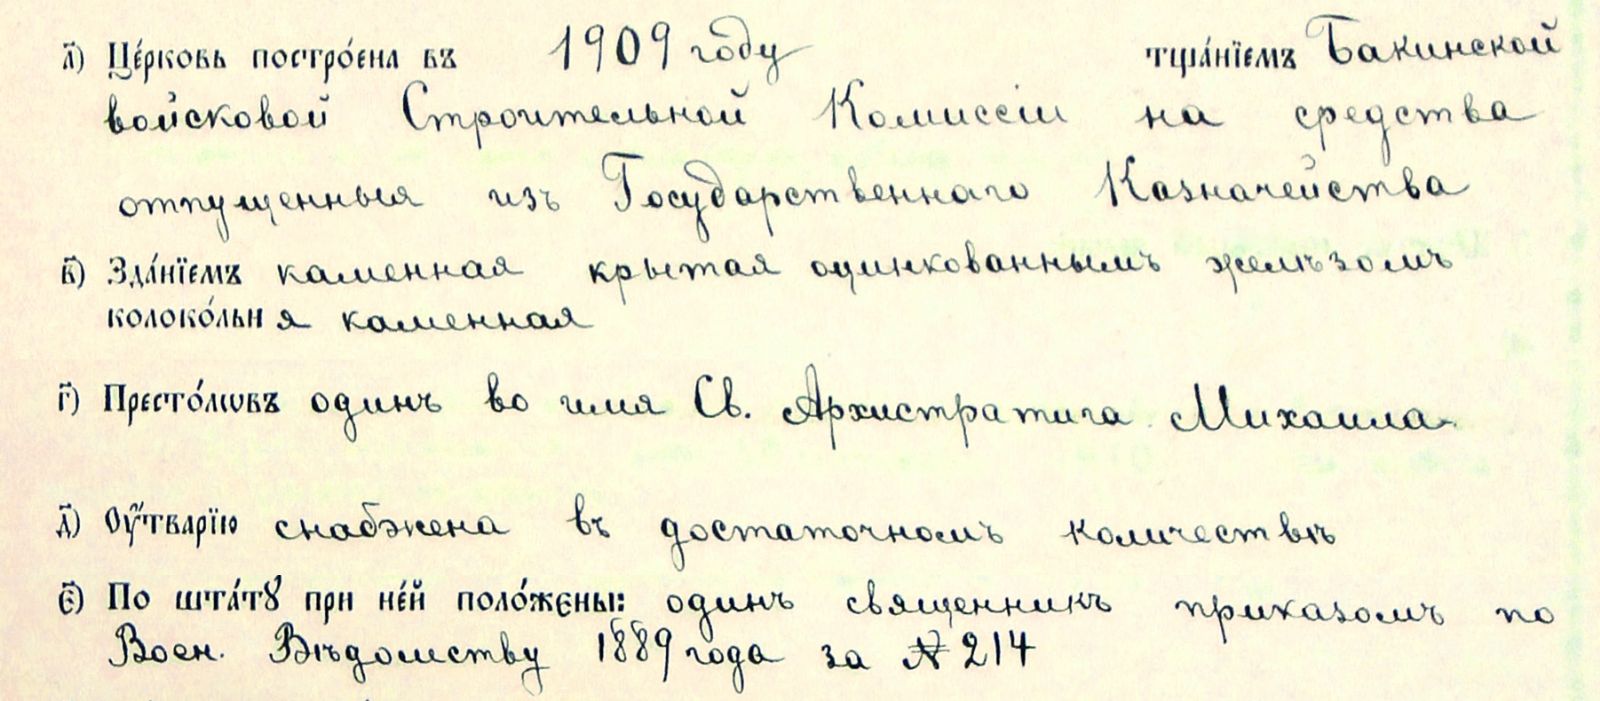 а҃) Це́рковь постро́ена въ 1909 году тща́нїемъ Бакинской
войсковой Строительной Комиссіи на средства
отпущенныя изъ Государственнаго Казначейства
в҃) Зда́нїемъ каменная крытая оцинкованнымъ желѣзомъ
колоко́льня каменная
г҃) Престо́лѡвъ одинъ во имя Св. Архистратига Михаила
д҃) Оу҆́тварїю снабжена въ достаточномъ количествѣ
є҃) По шта́тꙋ при не́й поло́жены: одинъ священникъ приказомъ по
Воен. Вѣдомству 1889 года за № 214